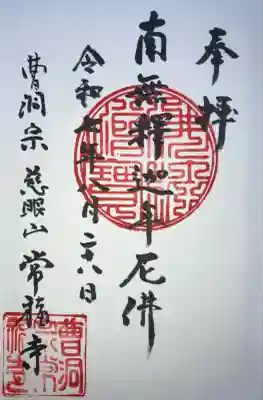 奉拝
南無釋迦牟尼佛
令和七年八月日
曹洞宗 慈眼山 常福寺